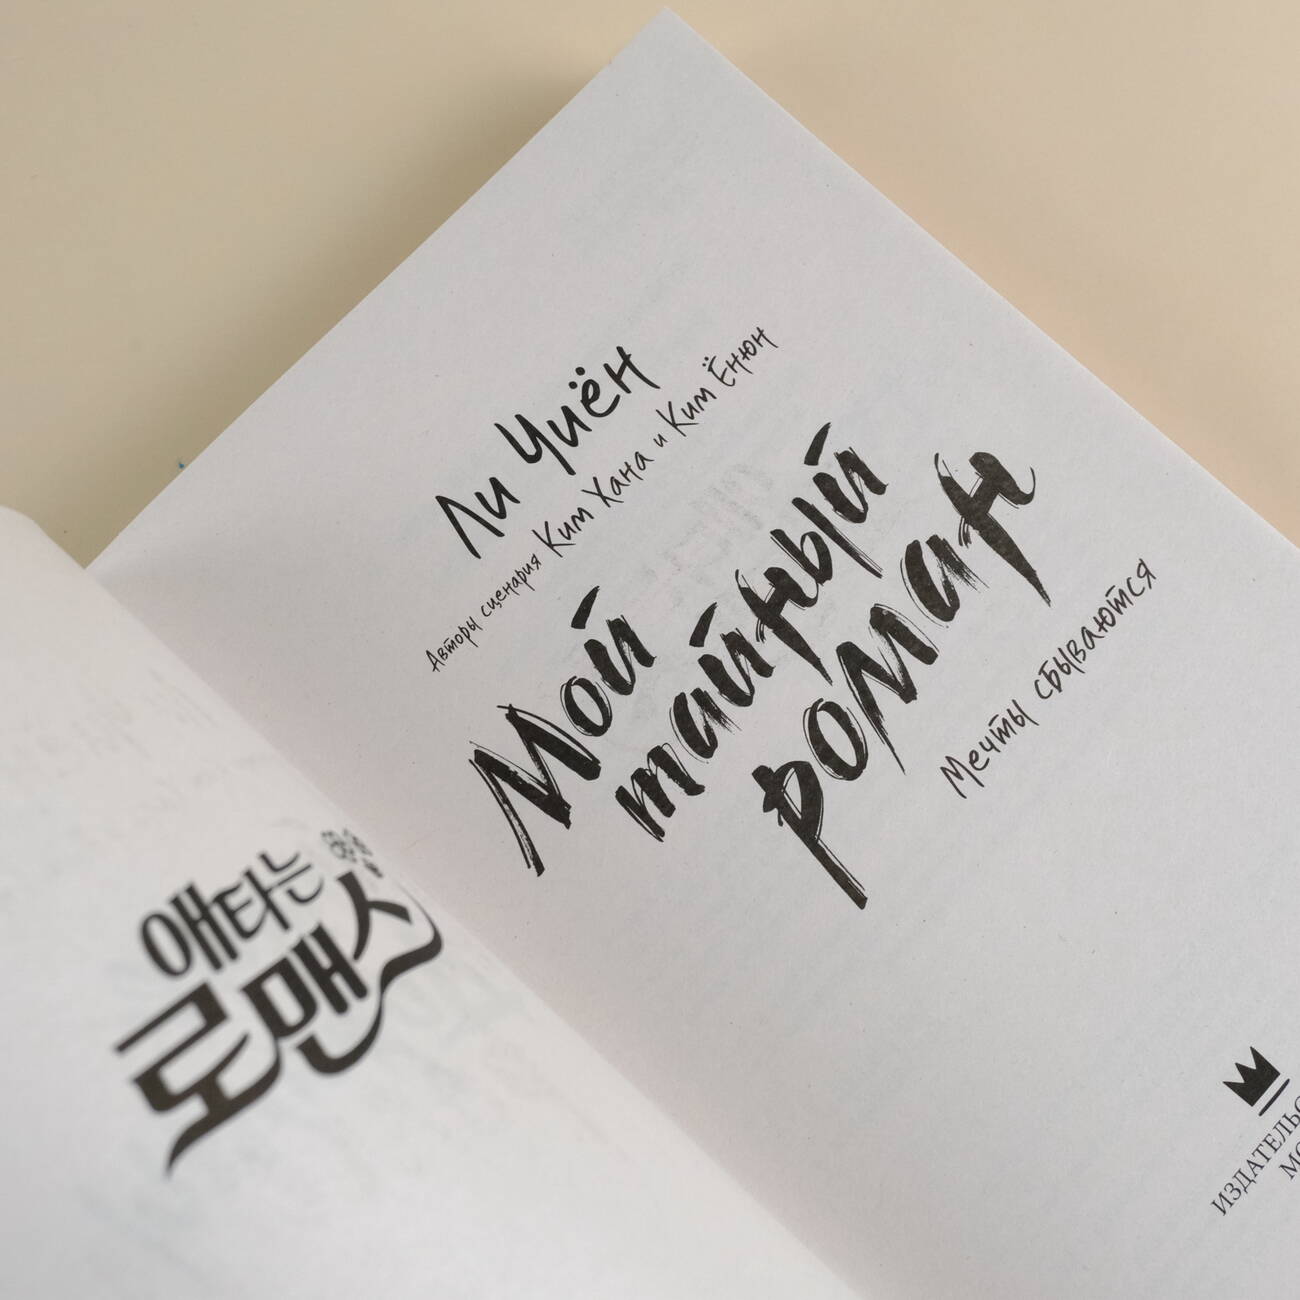 애타는
로맨스
Ли Чиён
Авторы сценария Ким Хана и Ким Ёнюн
Мой
тайный
роман
Мечты сбываются